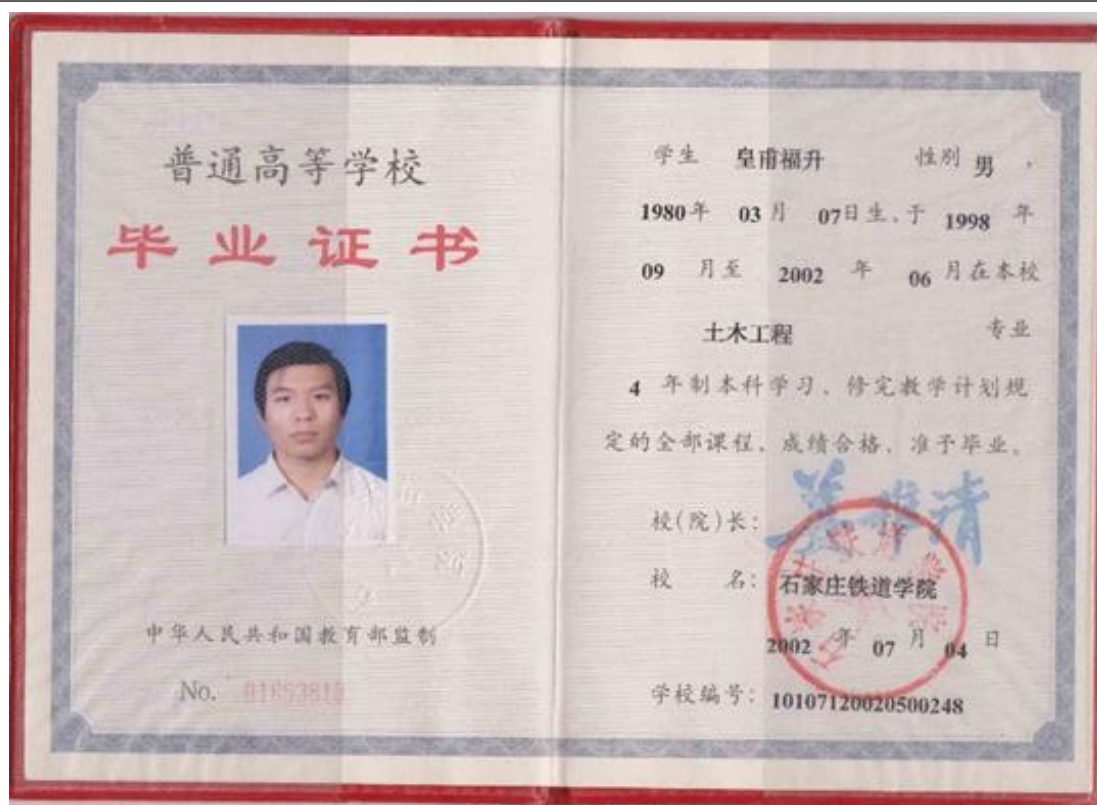 普通高等学校
毕业证书
中华人民共和国教育部监制
No. 01653810
学生 皇甫福升 性别 男 ,
1980年 03 月 07日生,于 1998 年
09 月至 2002 年 06 月在本校
土木工程 专业
4 年制本科学习、修完教学计划规
定的全部课程、成绩合格、准予毕业。
校(院)长:
校 名: 石家庄铁道学院
2002 年 07 月 04 日
学校编号: 10107120020500248